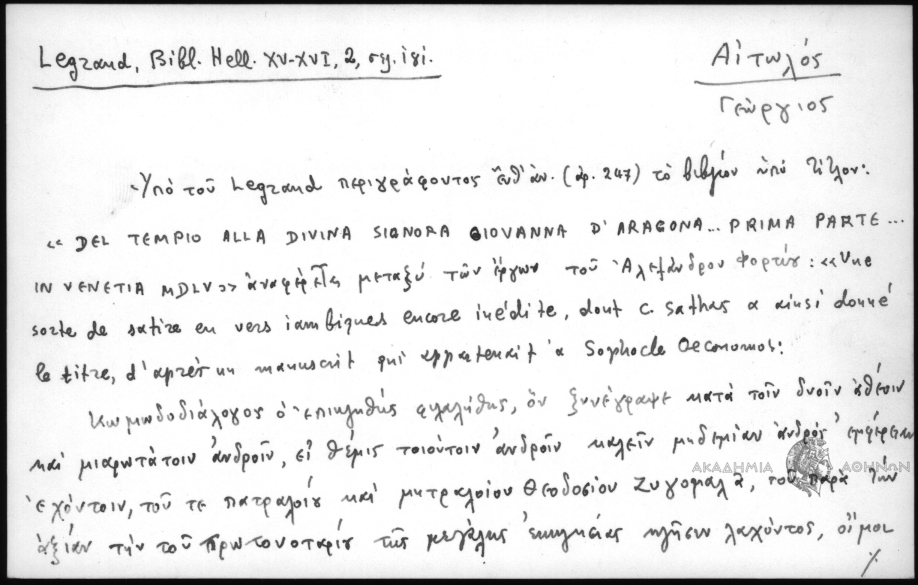 Legrand, Bibl. Hell. XV-XVI, 2, σελ. 181.
Αἰτωλός
Γεώργιος
Ὑπὸ τοῦ Legrand περιγράφοντος ἔνθ' ἀν. (ἀρ. 247) τὸ βιβλίον ὑπὸ τίτλον:
« DEL TEMPIO ALLA DIVINA SIGNORA GIOVANNA D'ARAGONA... PRIMA PARTE...
IN VENETIA MDLV» ἀναφέρεται μεταξὺ τῶν ἔργων τοῦ Ἀλεξάνδρου Φορτίου: «Une
sorte de satire en vers iambiques encore inédite, dont C. Sathas a ainsi donné
le titre, d'après un manuscrit qui appartenait à Sophocle Oeconomos:
Κωμωδοδιάλογος ὁ ἐπικληθεὶς φιλαλήθης, ὃν ξυνέγραψε κατὰ τοῖν δυοῖν ἀθέοιν
καὶ μιαρωτάτοιν ἀνδροῖν, εἰ θέμις τοιούτοιν ἀνδροῖν καλεῖν μηδεμίαν ἀνδρὸς ἐμφέρειαν
ἐχόντοιν, τοῦ τε πατραλοίου καὶ μητραλοίου Θεοδοσίου Ζυγομαλᾶ, τοῦ παρὰ τὴν
ἀξίαν τὴν τοῦ πρωτονοταρίου τῆς μεγάλης ἐκκλησίας κλῆσιν λαχόντος, οἴμοι
./.
ΑΚΑΔΗΜΙΑ ΑΘΗΝΩΝ